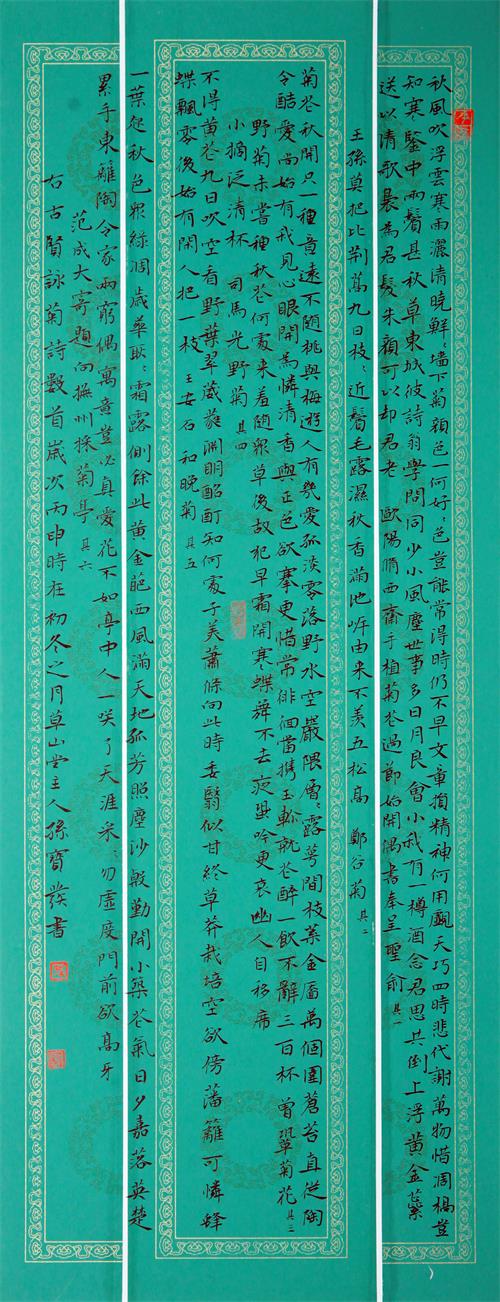 秋風吹浮雲寒雨灑清曉鮮〻墻下菊顏色一何好〻色豈能常得時仍不早文章損精神何用覷天巧四時悲代謝萬物惜凋槁豈
知寒鑒中兩鬢甚秋草東城彼詩翁學問同少小風塵世事多日月良會小我有一樽酒念君思共倒上浮黃金蘂
送以清歌裊為君發朱顏可以却君老 歐陽脩西齋手植菊花過節始開偶書奉呈聖俞 其一
王孫莫把比荆蒿九日枝〻近鬢毛露濕秋香滿池岸由来不羨五松高 鄭谷菊 其二
菊花秋開只一種意遠不隨桃與梅遊人有幾愛孤淡零落野水空巖隈層〻露萼間枝葉金靨萬個圍蒼苔直從陶
令酷愛尚始有我見心眼開為憐清香與正色欲搴更惜常徘徊當携玉軫就花醉一飲不辭三百杯 曾鞏菊花 其三
野菊未嘗種秋花何處来羞隨眾草後故犯早霜開寒蝶舞不去夜蛩吟更哀幽人自移席
小摘泛清杯 司馬光野菊 其四
不得黃花九日吹空看野葉翠葳蕤淵明酩酊知何處子美蕭條向此時委翳似甘終草莽栽培空欲傍藩籬可憐蜂
蝶飄零後始有閑人把一枝 王安石 和晚菊 其五
一葉起秋色眾綠凋歲華耿〻霜露側餘此黃金葩西風滿天地孤芳照塵沙殷勤開小築花氣日夕嘉落英楚
累手東籬陶令家兩窮偶寓意豈必真愛花不如亭中人一咲了天涯采〻勿虛度門前欲高牙
范成大寄題向撫州採菊亭 其六
右古賢詠菊詩數首歲次丙申時在初冬之月草山堂主人孫寶發書